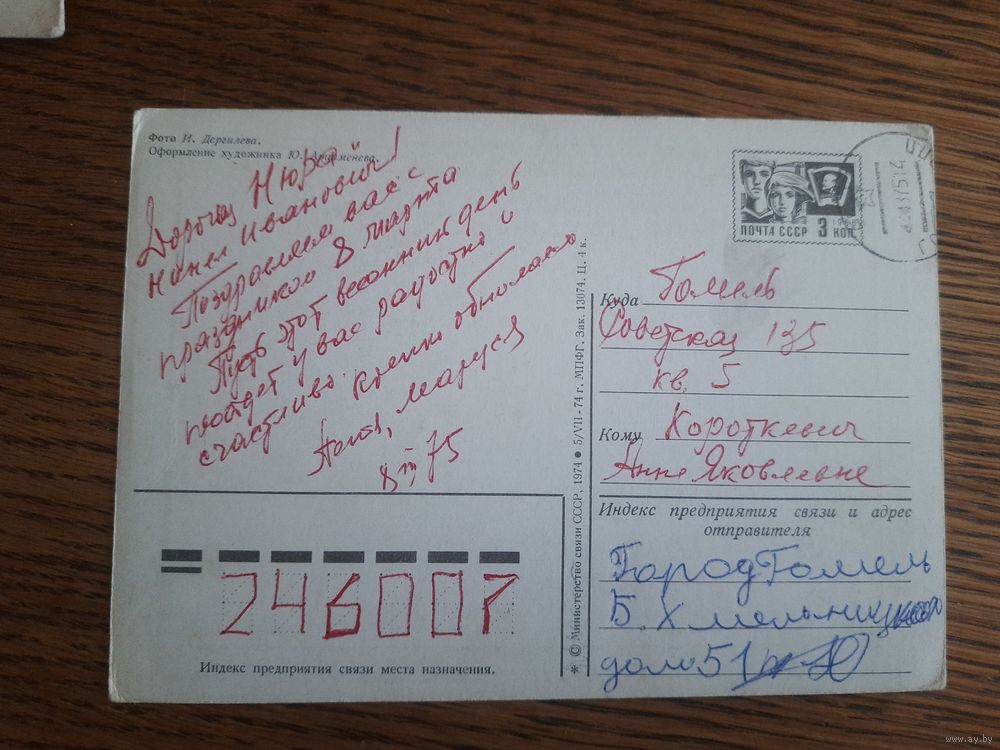 Фото И. Дергилева.
Оформление художника Ю. Артименева.
Дорогая Нюра
Нинел Ивановны!
Поздравляем вас с
праздником 8 марта
Пусть этот весенний день
пройдет у вас радостно и
счастливо. Крепко обнимаю
Маруся
8 III 75
ПОЧТА СССР 3 КОП
Куда Гомель
Советская 135
кв. 5
Кому Короткевич
Анне Яковлевне
Индекс предприятия связи и адрес
отправителя
Город Гомель
Б. Хмельницкого
дом 51
246007
Индекс предприятия связи места назначения.
* © Министерство связи СССР, 1974 ● 5/VII-74 г. МПФГ. Зак. 13074. Ц. 4 к.
www.ay.by